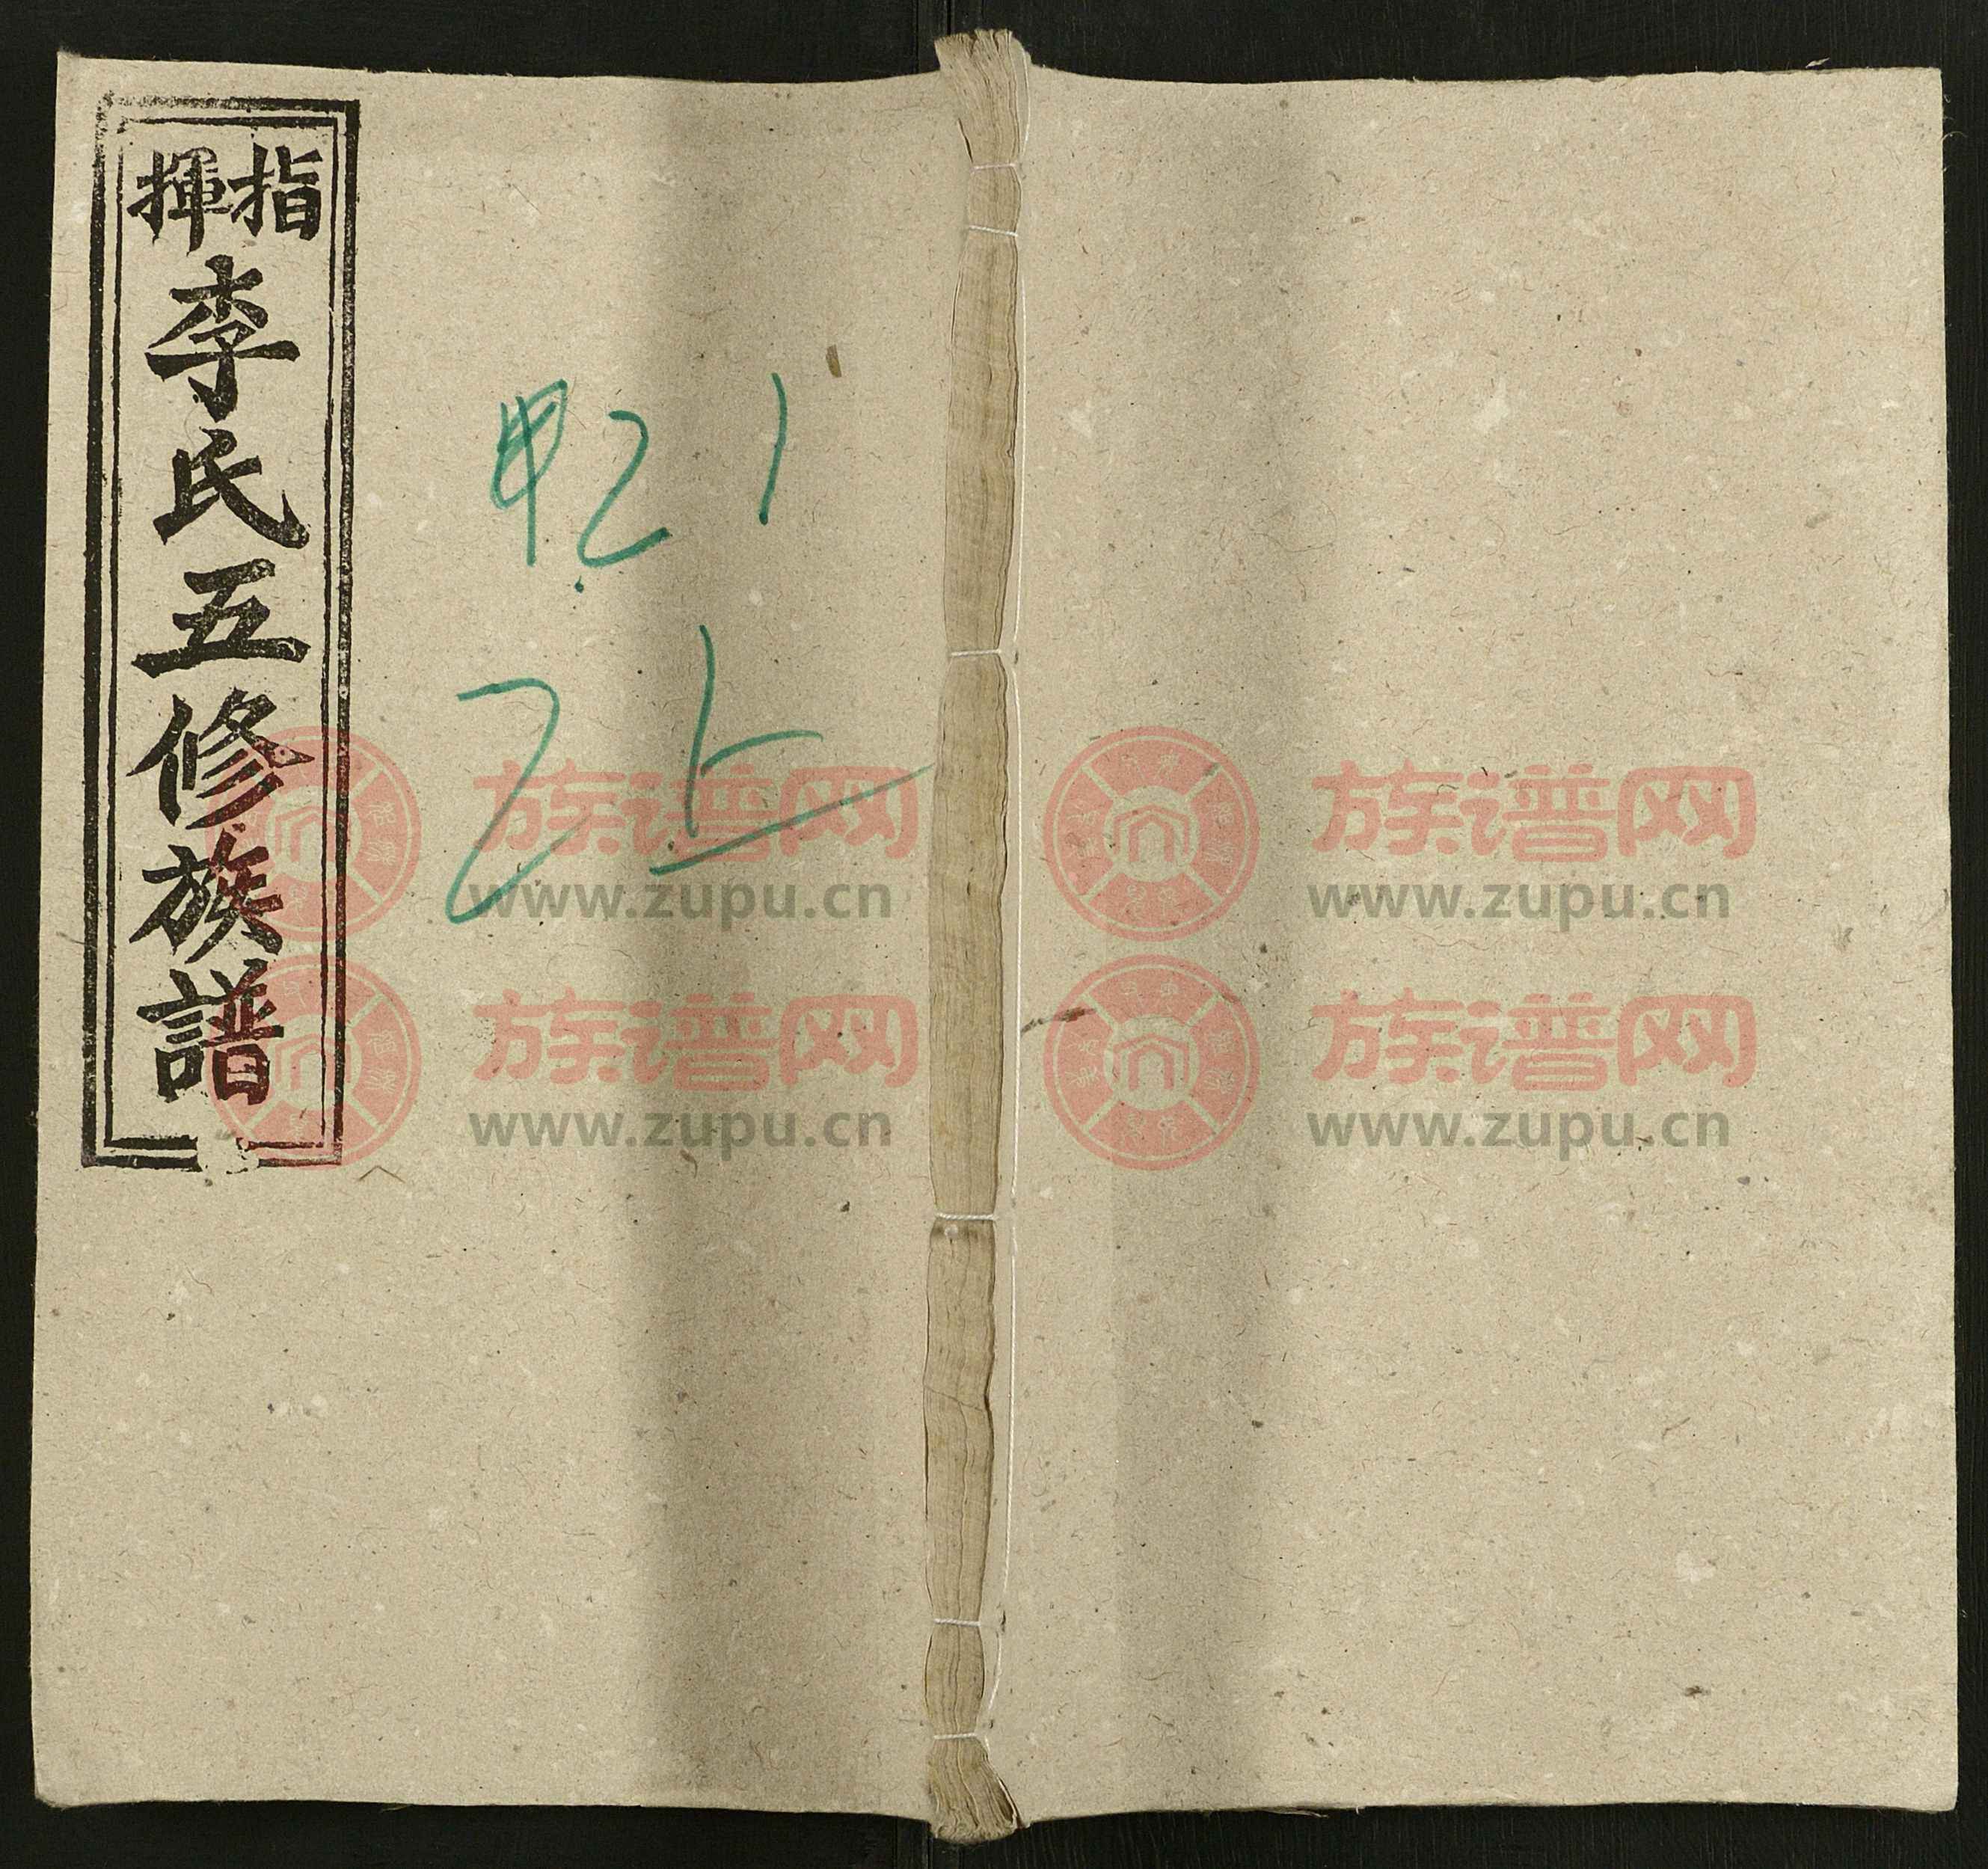 指揮
李氏五修族譜
甲乙 1
乙 上
族谱网
www.zupu.cn
族谱网
www.zupu.cn
族谱网
www.zupu.cn
族谱网
www.zupu.cn